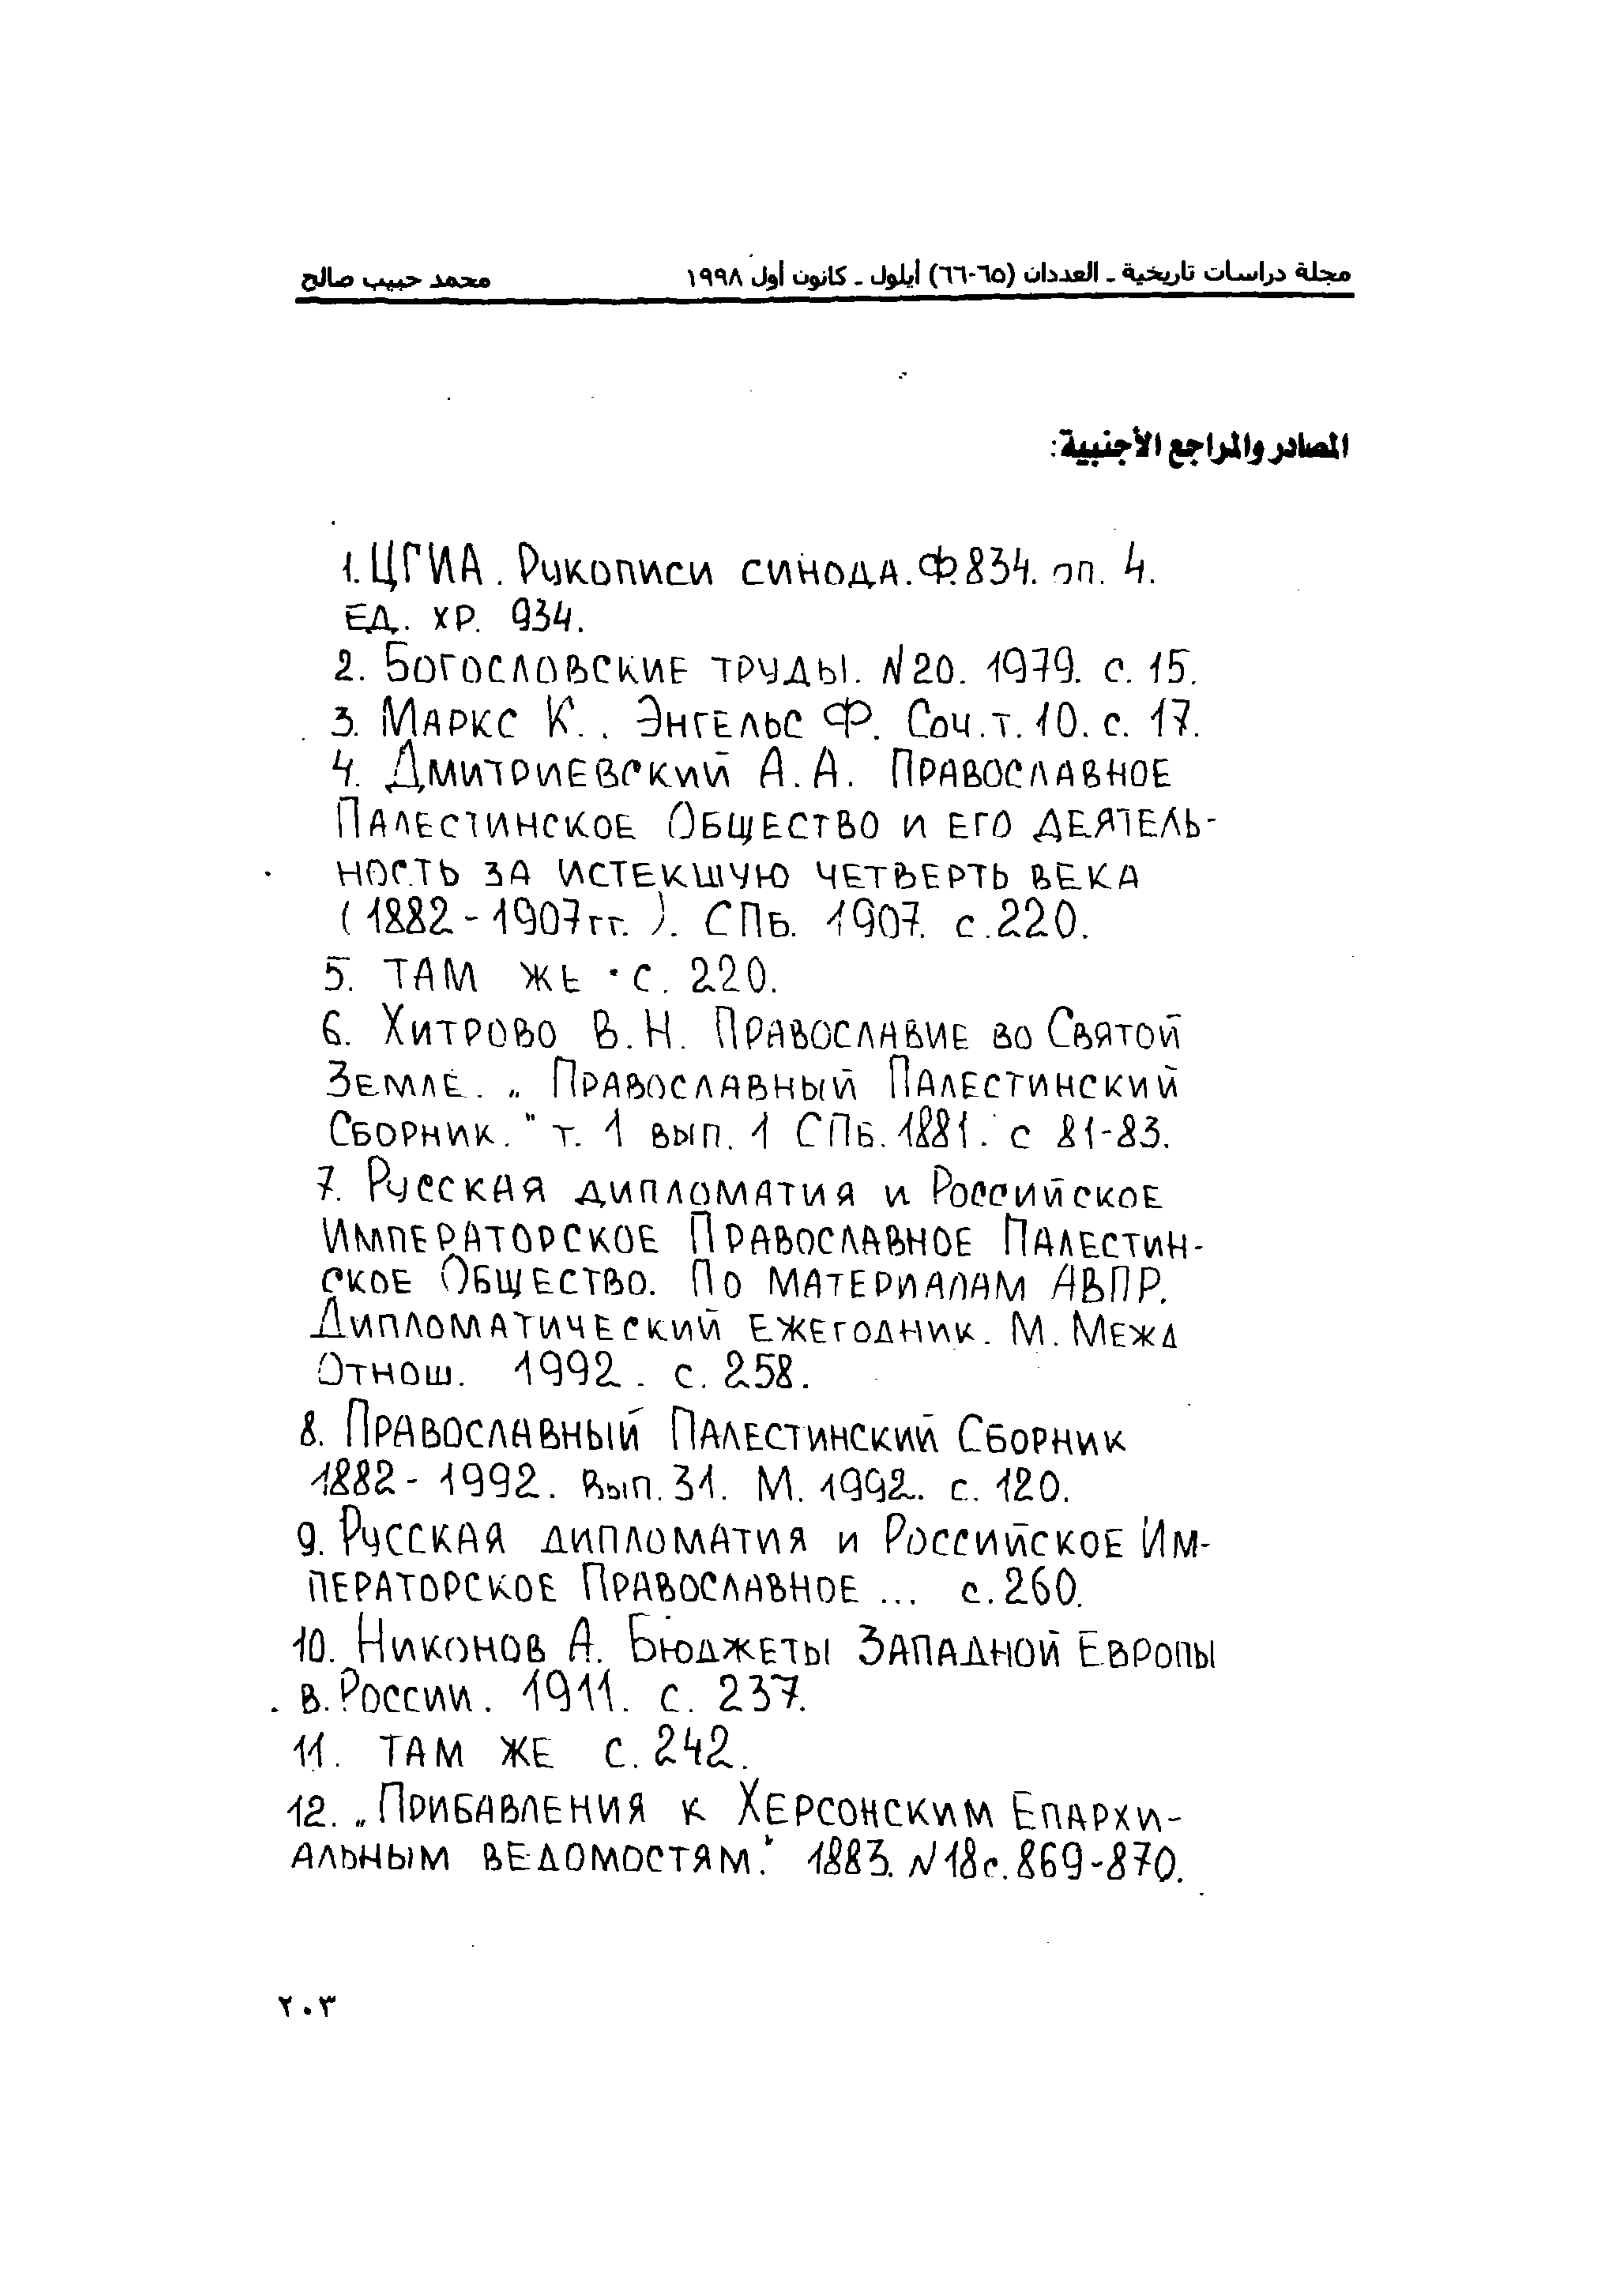 مجلة دراسات تاريخية ـ العددان (٦٥-٦٦) أيلول ـ كانون أول ١٩٩٨ محمد حبيب صالح
المصادر والمراجع الأجنبية:
1. ЦГИА. Рукописи синода. Ф.834. оп. 4.
ед. хр. 934.
2. Богословские труды. N20. 1979. с. 15.
3. Маркс К.. Энгельс Ф. Соч. т. 10. с. 17.
4. Дмитриевский А.А. Православное
Палестинское Общество и его деятель-
ность за истекшую четверть века
(1882-1907гг.). СПб. 1907. с.220.
5. там же . с. 220.
6. Хитрово В.Н. Православие во Святой
Земле. „Православный Палестинский
Сборник." т. 1 вып. 1 СПб. 1881. с 81-83.
7. Русская дипломатия и Российское
Императорское Православное Палестин-
ское Общество. По материалам АВПР.
Дипломатический ежегодник. М. Межд
Отнош. 1992. с. 258.
8. Православный Палестинский Сборник
1882-1992. Вып. 31. М. 1992. с. 120.
9. Русская дипломатия и Российское Им-
ператорское Православное ... с.260.
10. Никонов А. Бюджеты Западной Европы
в.России. 1911. с. 237.
11. там же с. 242.
12. „Прибавления к Херсонским Епархи-
альным ведомостям." 1883. N18 с. 869-870.
٢٠٣